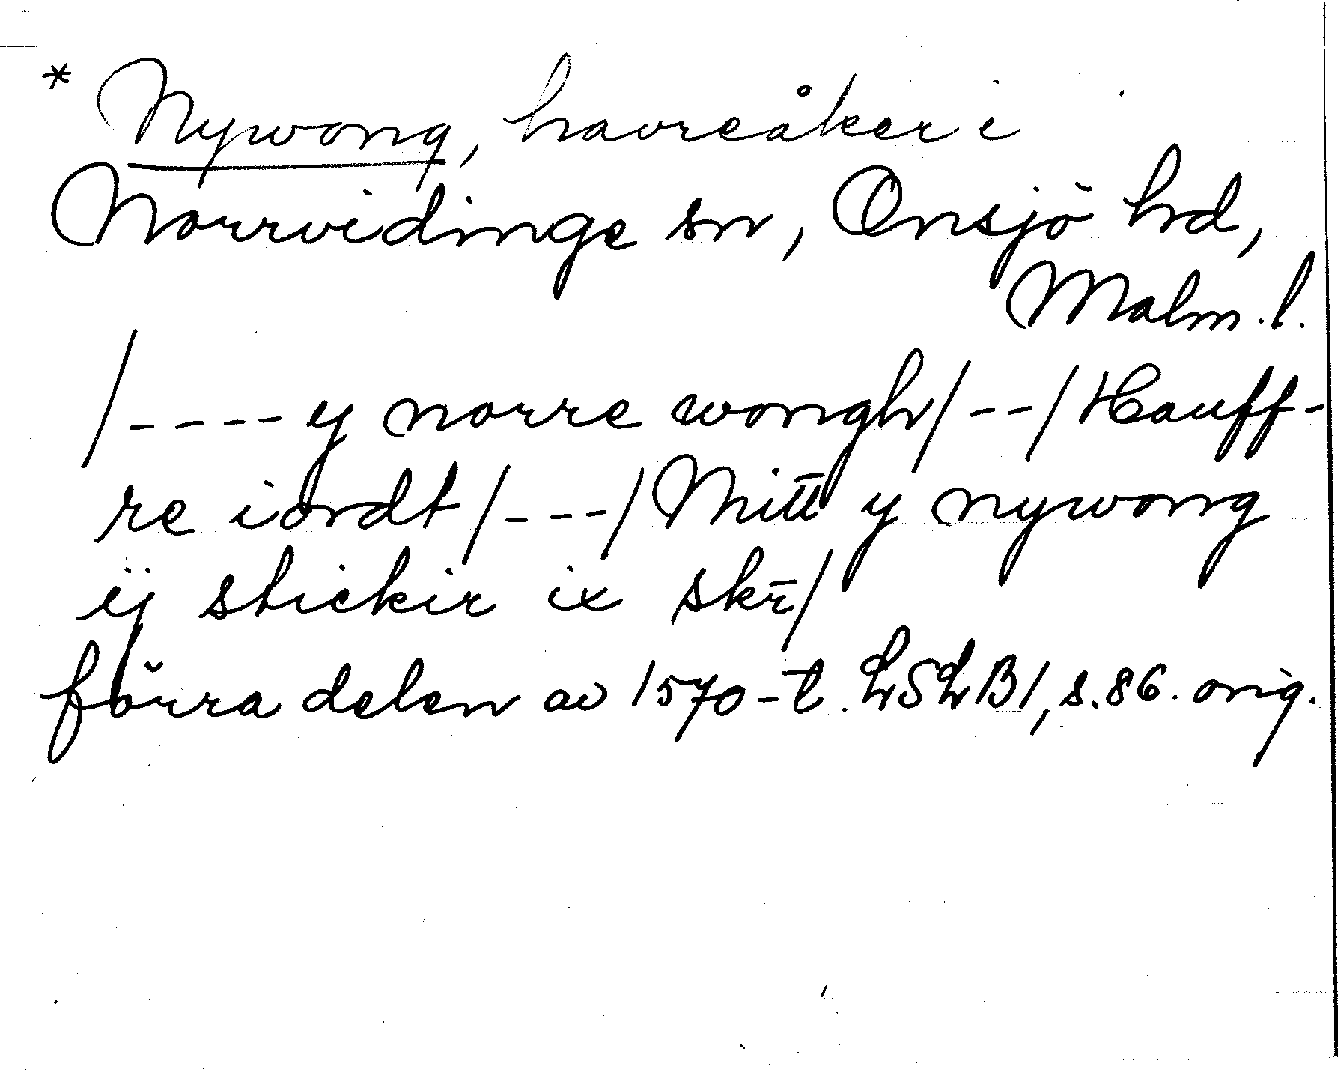 * Nywong, havreåker i
Norrvidinge sn, Onsjö hrd,
Malm.l.
/----y norre wongh/--/Hauff-
re iordt/---/Mitt y nywong
ij stickir ix skr̄/
förra delen av 1570-t. LSLB1, s.86. orig.